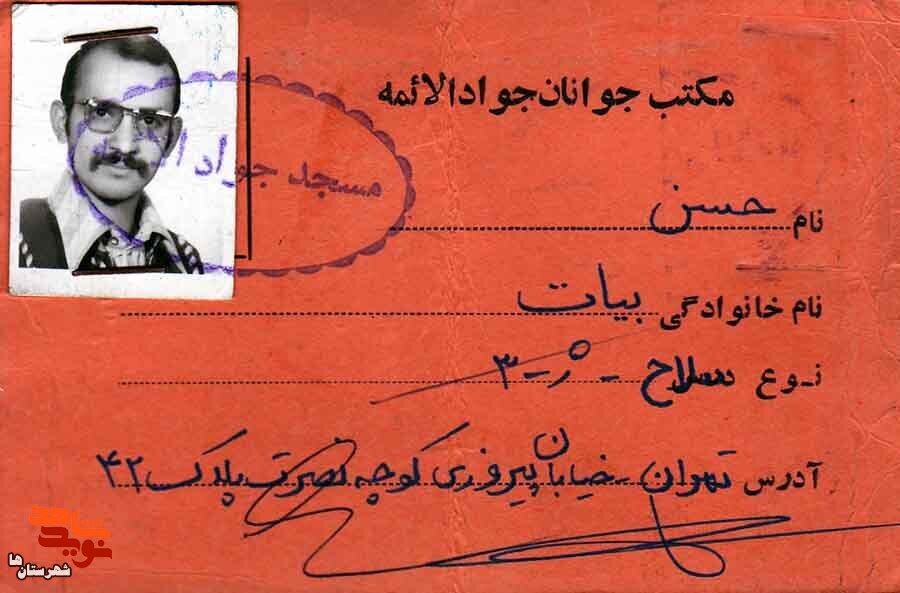 مکتب جوانان جوادالائمه
مسجد جواد
نام حسن
نام خانوادگی بیات
نوع سلاح ژ-۳
آدرس تهران - خیابان پیروزی کوچه نصرت پلاک ۴۲
نوید
شهرستان‌ها